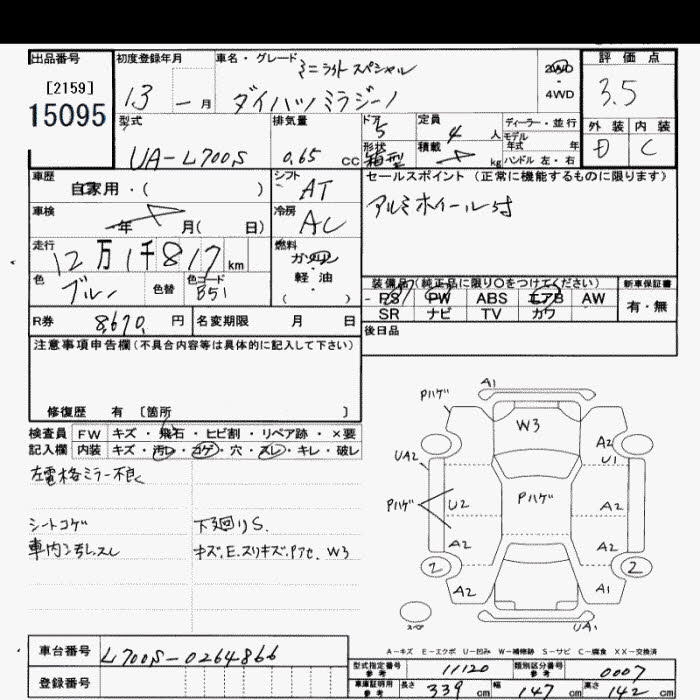 出品番号 初度登録年月 車名・グレード ミニライト スペシャル 2WD 評価点
[2159] 13 ー 月 ダイハツ ミラジーノ 4WD 3.5
15095 型式 排気量 ドア 5 定員 4 人 ディーラー・並行 外装 内装
UA-L700S 0.65 cc 形状 箱型 積載 kg モデル年式 年 D C
ハンドル 左・右
車歴 自家用・( ) シフト AT セールスポイント (正常に機能するものに限ります)
車検 年 月( 日) 冷房 AC アルミホイール付
走行 12万1千817 km 燃料 ガソリン
軽油
( )
色 ブルー 色替 色コード B51 装備品(純正品に限り○をつけてください) 新車保証書
PS PW ABS エアB AW 有・無
R券 8,670 円 名変期限 月 日 SR ナビ TV カワ
注意事項申告欄(不具合内容等は具体的に記入して下さい) 後日品
修復歴 有 [箇所 ]
検査員 FW キズ・飛石・ヒビ割・リペア跡・×要
記入欄 内装 キズ・汚レ・コゲ・穴・スレ・キレ・破レ
左電格ミラー不良
シートコゲ 下廻りS.
車内汚レ.スレ キズ.E.スリキズ.Pアセ.W3
A1
Pハゲ
W3
A2
U1
UA2
Pハゲ U2 Pハゲ A2
A2 A2
2 2
A2 A1
スペ UA1
A-キズ E-エクボ U-凹み W-補修跡 S-サビ C-腐食 XX-交換済
車台番号 L700S-0264866 型式指定番号 参考 11120 類別区分番号 参考 0007
登録番号 車庫証明用 参考 長さ 339 cm 幅 147 cm 高さ 142 cm